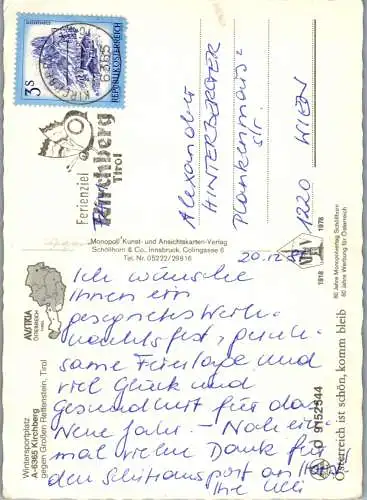 3S
REPUBLIK ÖSTERREICH
6365
Ferienziel
Kirchberg
Tirol
Alexander
HINTERBERGER
Plankenmais-
str.
1220 WIEN
Monopol Kunst- und Ansichtskarten-Verlag
Schöllhorn & Co., Innsbruck, Colingasse 6
Tel. Nr. 05222/29816
1918 1978
60 Jahre Monopolverlag Schöllhorn
60 Jahre Werbung für Österreich
AUSTRIA
ÖSTERREICH
TIROL
Wintersportplatz
A-6365 Kirchberg
gegen Großen Rettenstein, Tirol
20.12.
Ich wünsche
Ihnen ein
gesegnetes Weih-
nachtsfest, geruh-
same Feiertage und
viel Glück und
Gesundheit für das
Neue Jahr. - Noch ein-
mal vielen Dank für
den Schitransport an
Ihre Ulli
TO 9152544
Österreich ist schön, komm bleib